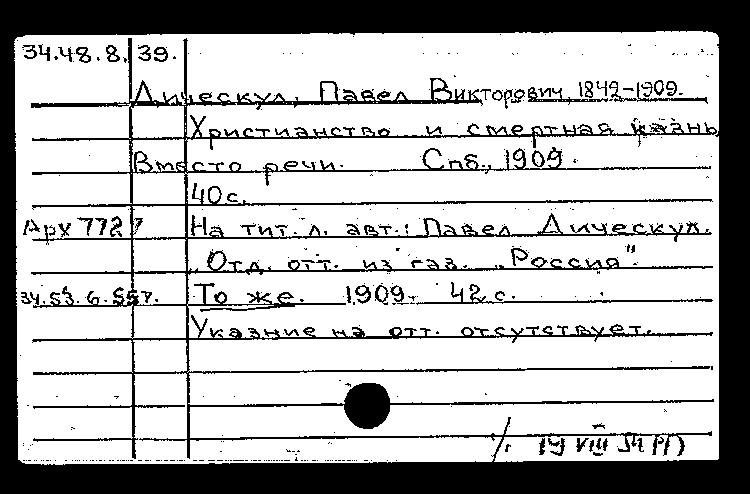 34.48.8.39.
Дическул, Павел Викторович, 1842-1909.
Христианство и смертная казнь
Вместо речи. Спб., 1909.
40 с.
Арх 7727 На тит. л. авт.: Павел Дическул.
„Отд. отт. из газ. „Россия“.
34.53.6.557. То же. 1909. 42 с.
Указние на отт. отсутствует.
19 VIII 54